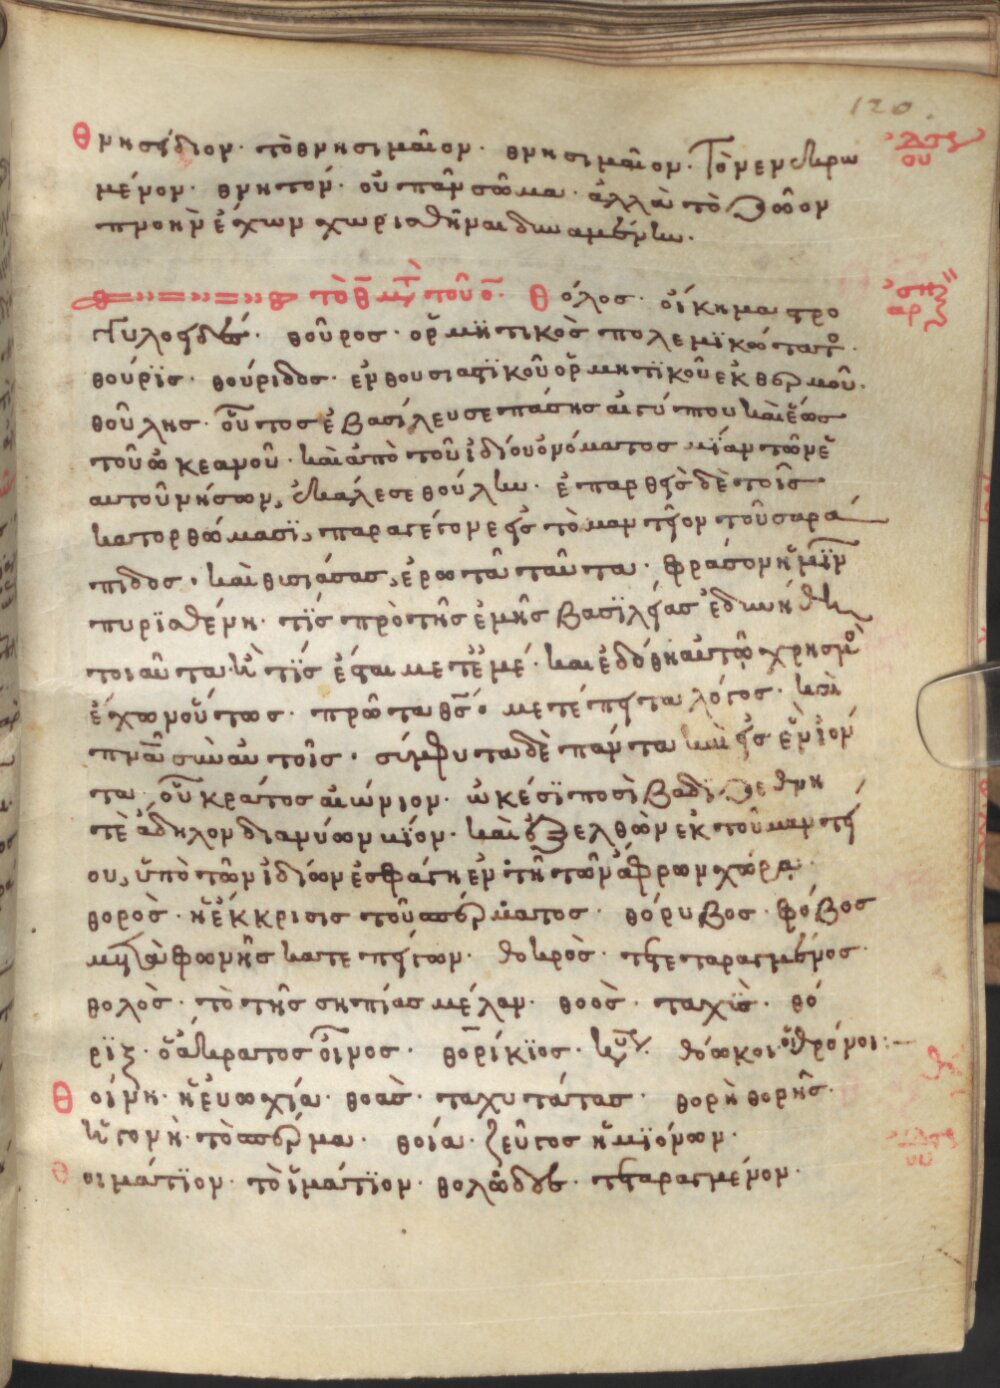 120
Θνησείδιον· τὸ θνησιμαῖον· θνησιμαῖον· τὸ νενεκρω
μένον· θνητόν· οὐ πᾶν σῶμα· ἀλλὰ τὸ ζῶον
πνοὴν ἔχων χωρισθῆναι δυναμένην.
τὸ θ μετὰ τοῦ ο· Θόλος· οἴκημα στρο
γγυλοειδές· θοῦρος· ὁρμητικὸς πολεμϊκώτατος·
θούρϊς· θούριδος· ἐνθουσιαστϊκοῦ ὁρμητϊκοῦ ἐκ θερμοῦ·
θούλης· οὗτος ἐβασίλευσε πάσης αἰγύπτου καὶ ἕως
τοῦ ὠκεανοῦ· καὶ ἀπὸ τοῦ ἰδίου ὀνόματος μίαν τῶν ἐν
αυτοῦ νήσων, ἐκάλεσε θούλην· ἐπαρθεὶς δὲ τοῖς
κατορθώμασϊ, παραγέγονε εἰς τὸ μαντεῖον τοῦ σαρά
πιδος· καὶ θυσιάσας, ἐρωτᾶ ταῦτα· φράσον ἡμῖν
πυρϊσθένη· τίς πρὸ τῆς ἐμῆς βασϊλείας ἐδυνήθη
τοιαῦτα· ἢ τίς ἔσται μετ' ἐμέ· καὶ ἐδόθη αὐτῷ χρησμὸς
ἔχων οὕτως· πρῶτα θς· μετέπειτα λόγος· καὶ
πνα σὺν αὐτοῖς· σύμφυτα δὲ πάντα καὶ εἰς ἓν ἰόν
τα· οὗ κράτος αἰώνιον· ὠκέσϊ ποσὶ βάδϊζε θνη
τὲ ἄδηλον διανύων βίον· καὶ ἐξελθὼν ἐκ τοῦ μαντεί
ου, ὑπὸ τῶν ἰδίων ἐσφάγη ἐν τῇ τῶν ἄφρων χώρᾳ·
θορὸς· ἡ ἔκκρισις τοῦ σπέρματος· θόρυβος· φόβος
μετὰ φωνῆς κατεπείγων· θολερὸς· τεταραγμένος·
θολὸς· τὸ τῆς σηπίας μέλαν· θοὸς· ταχὺς· θό
ριξ· ὁ ἄκρατος οἶνος· θορίκϊος· θόωκοι· οἱ θρόνοι:
Θοίνη· ἡ εὐωχία· θοὰς· ταχυτάτας· θορὴ θορῆς·
ἡ γονὴ· τὸ σπέρμα· θοία· ζεῦγος ἡμϊόνων·
Θοιμάτϊον· τὸ ἱμάτϊον· θολῶδες· τεταραγμένον·